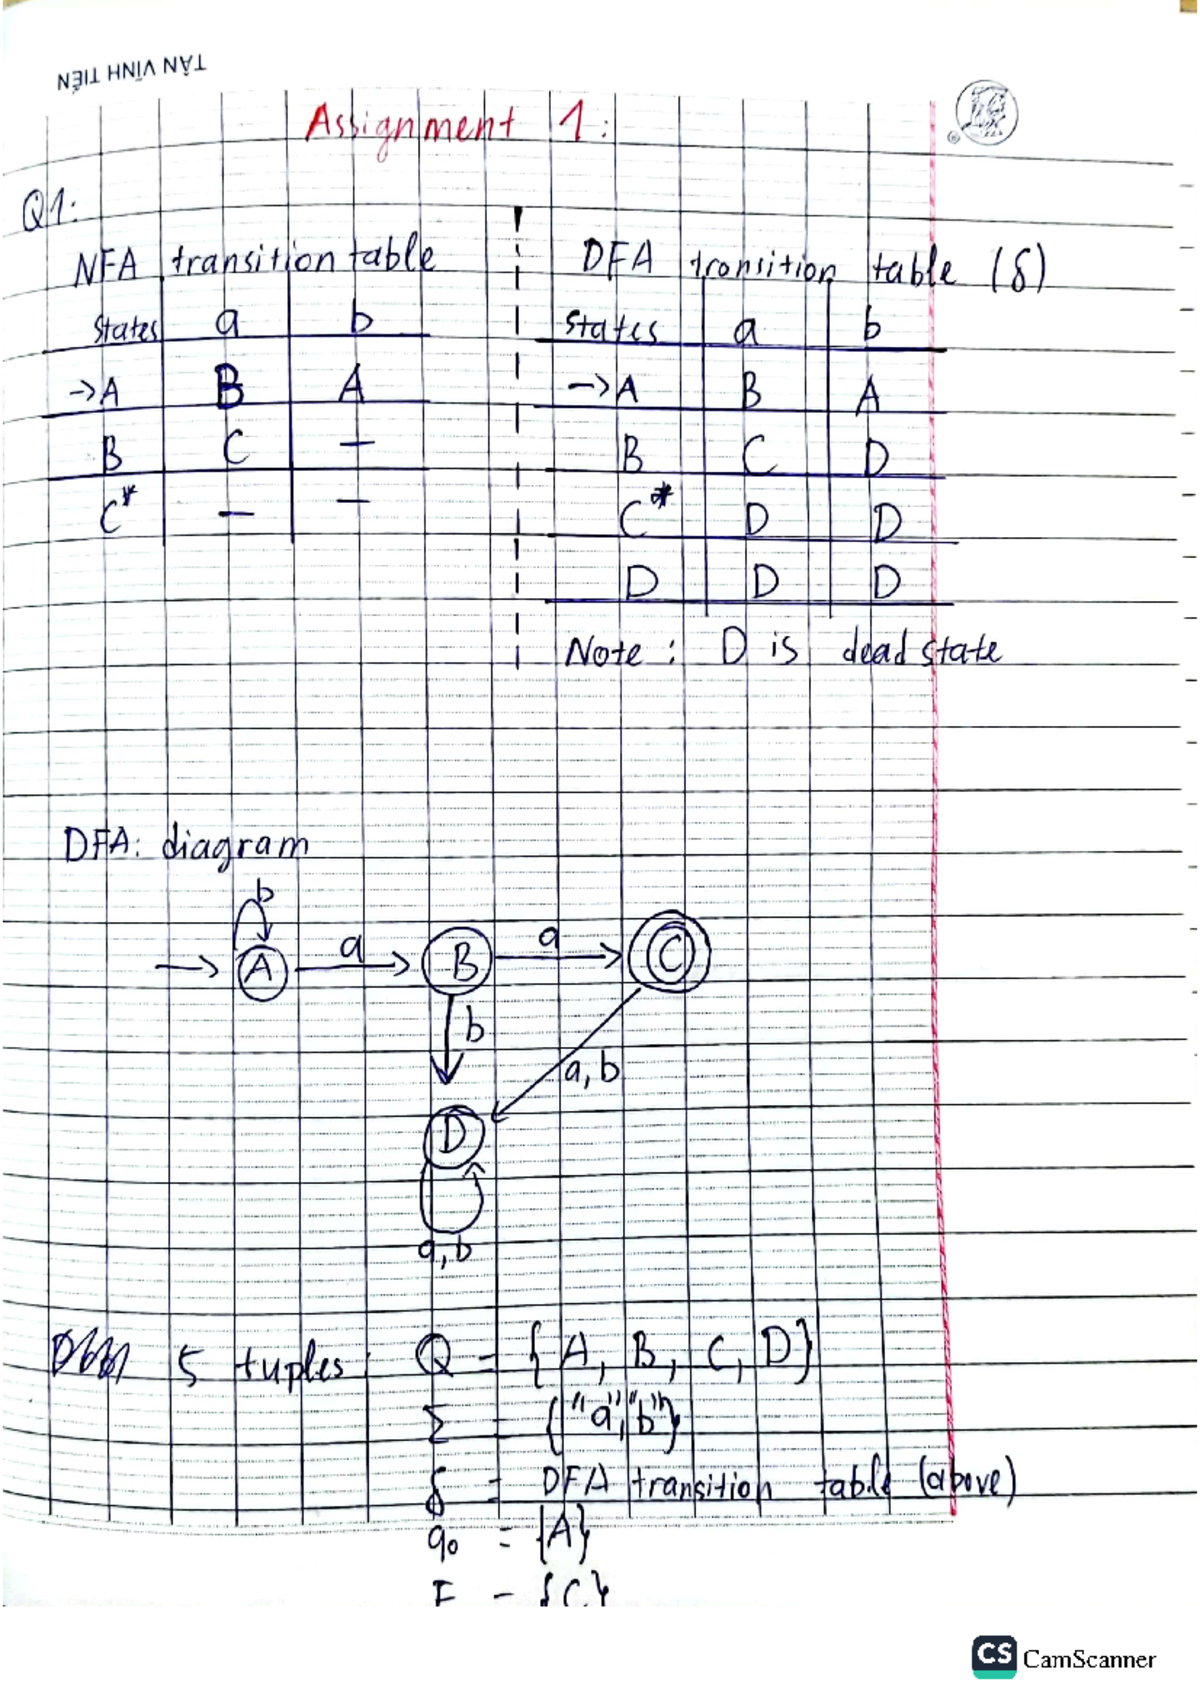 TÂN VĨNH TIẾN
Assignment 1:
Q1:
NFA transition table
States a b
->A B A
B C –
C* – –
DFA tronsition table (δ)
States a b
->A B A
B C D
C* D D
D D D
Note: D is dead state
DFA: diagram
b
A a B a C
b
a, b
D
a, b
5 tuples: Q = {A, B, C, D}
Σ = {"a","b"}
δ = DFA transition table (above)
q0 = {A}
F = {C}
CS CamScanner